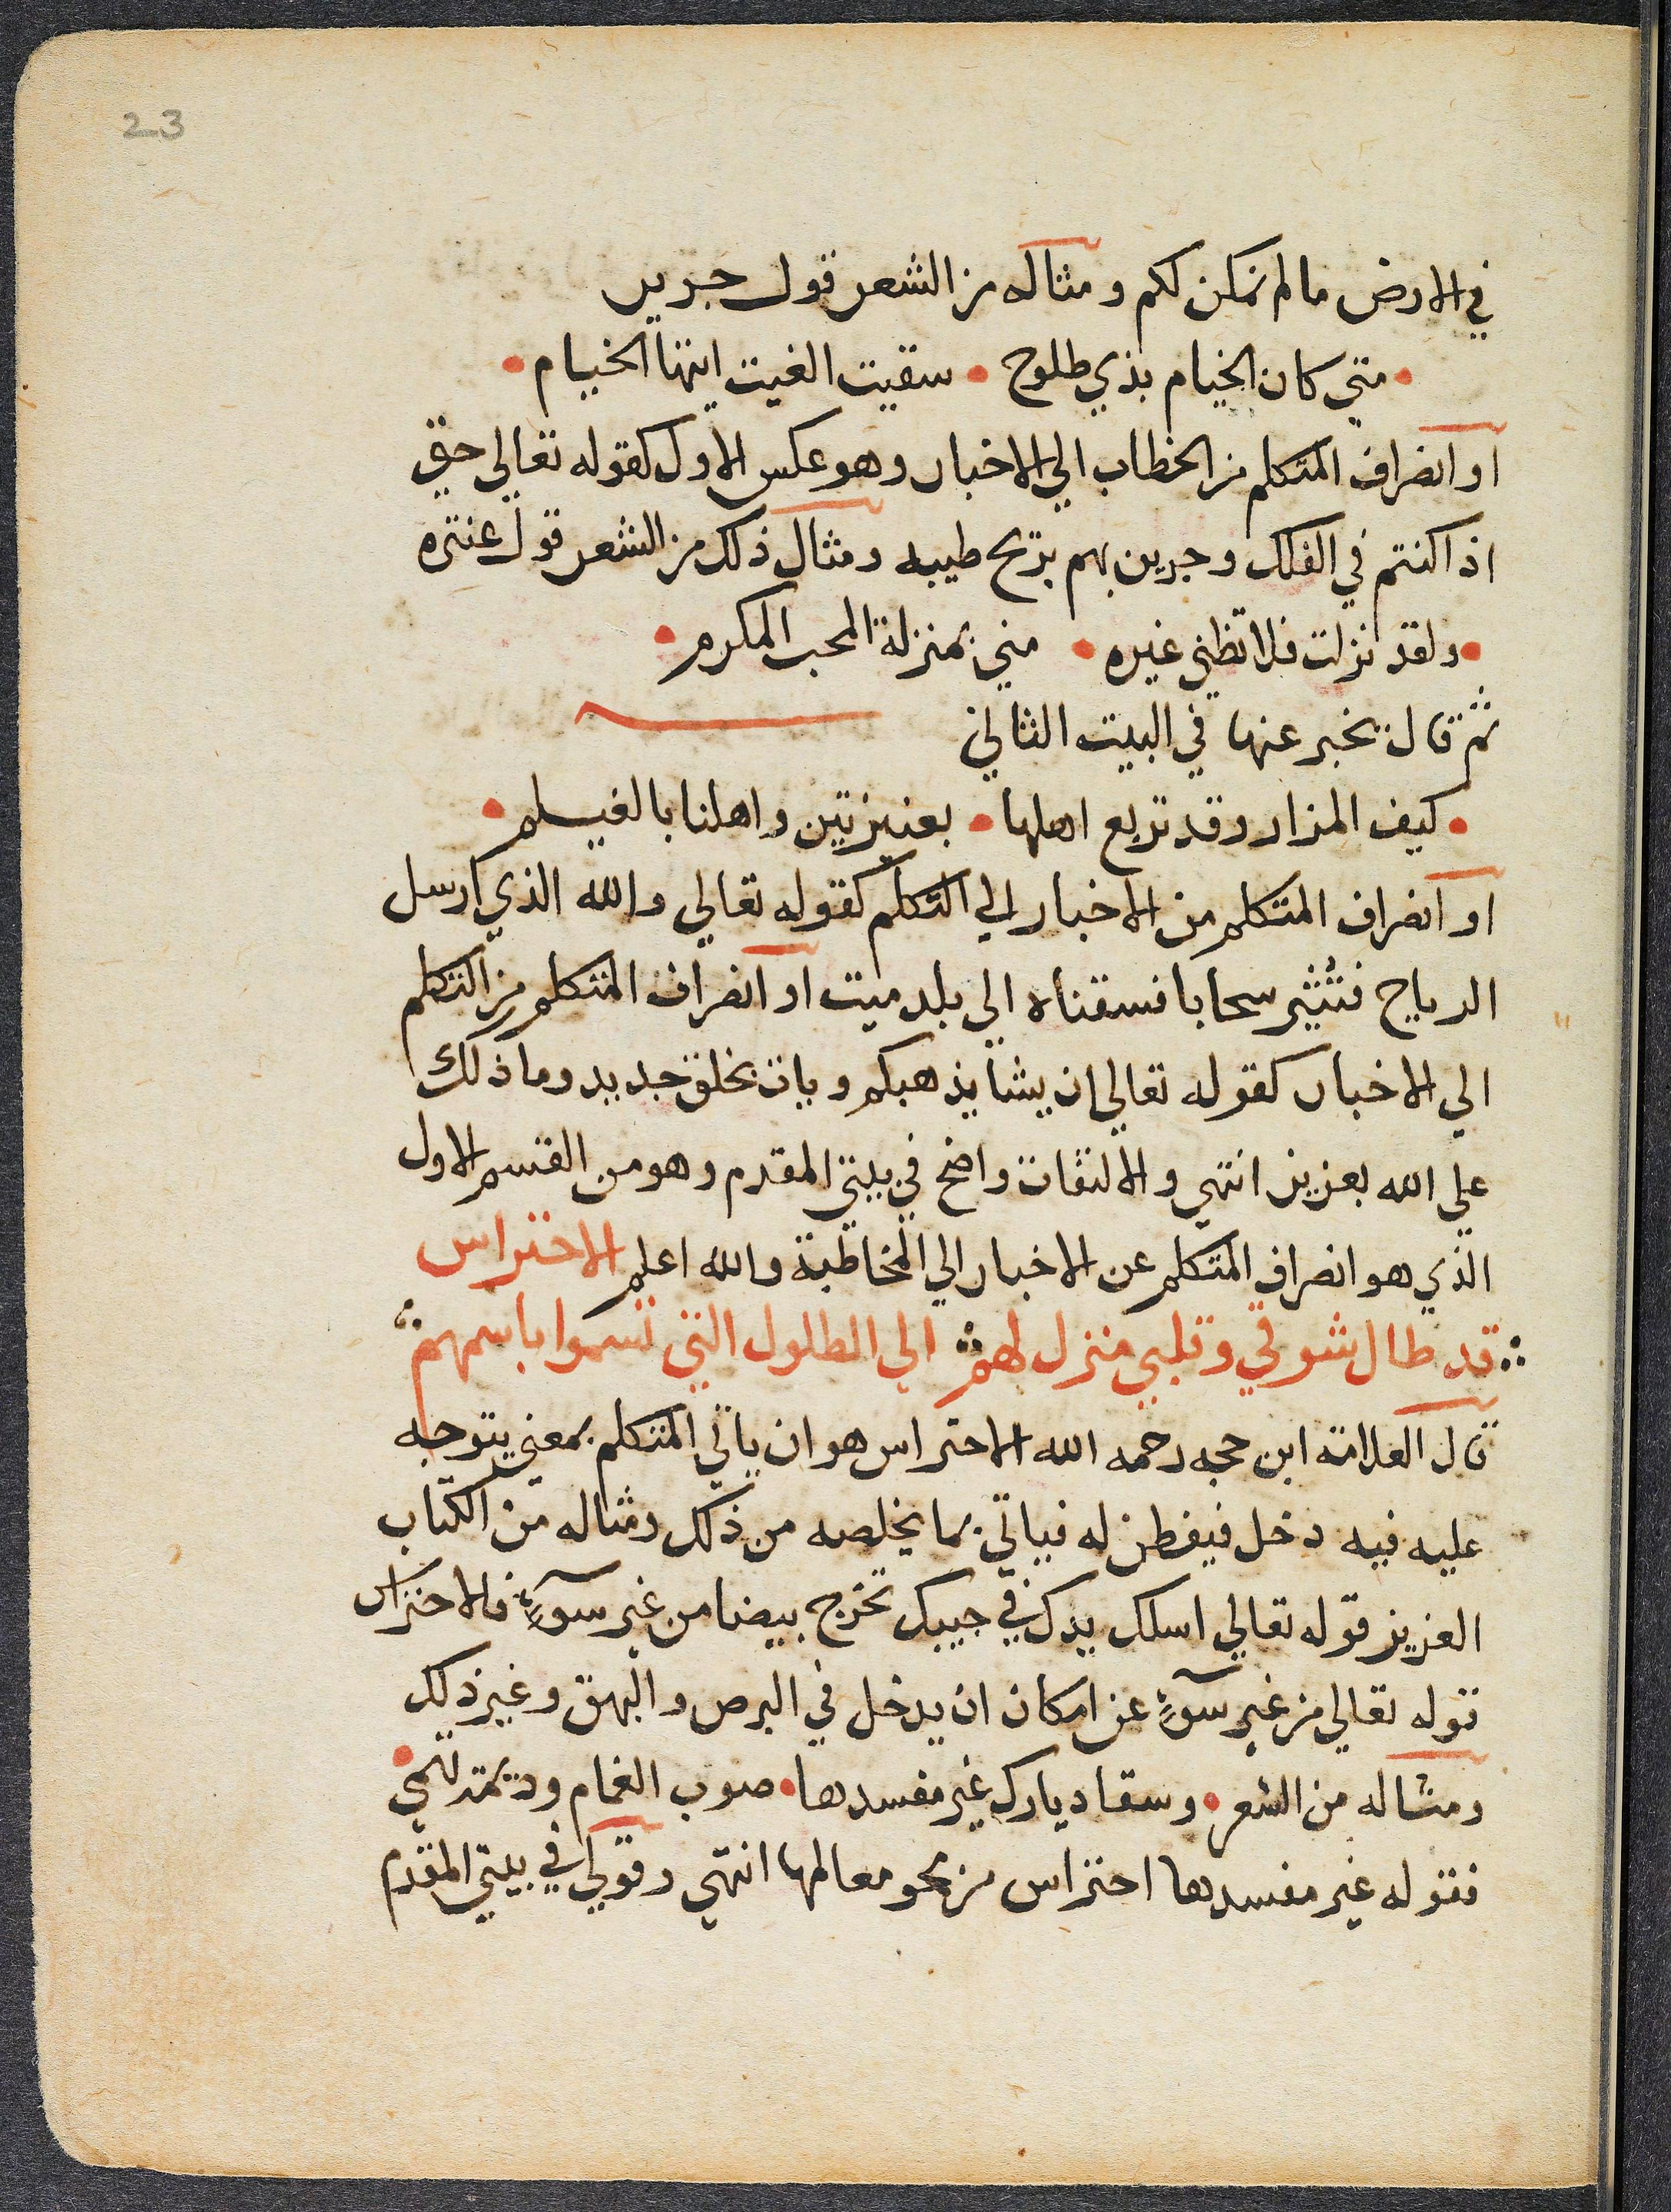 23
في الارض ما لم نمكن لكم ومثاله من الشعر قول جرير
• متي كان الخيام بذي طلوح • سقيت الغيث ايتها الخيام •
او انصراف المتكلم من الخطاب الي الاخبار وهو عكس الاول كقوله تعالي حتي
اذا كنتم في الفلك وجرين بهم بريح طيبه ومثال ذلك من الشعر قول عنتره
• ولقد نزلت فلا تظني غيره • مني بمنزلة المحب المكرم •
ثم قال يخبر عنها في البيت الثاني
• كيف المزار وقد تربع اهلها • بعنيزتين واهلنا بالغيلم •
او انصراف المتكلم من الاخبار الي التكلم كقوله تعالي والله الذي ارسل
الرياح فتُثير سحابا فسقناه الي بلد ميت او انصراف المتكلم من التكلم
الي الاخبار كقوله تعالي ان يشا يذهبكم ويات بخلق جديد وما ذلك
علي الله بعزيز انتهي والالتفات واضح في بيتي المقدم وهو من القسم الاول
الذي هو انصراف المتكلم عن الاخبار الي المخاطبة والله اعلم الاحتراس
قد طال شوقي وقلبي منزل لهم الي الطلول التي تسموا باسمهم
قال العلامة ابن حجه رحمه الله الاحتراس هو ان ياتي المتكلم بمعني يتوجه
عليه فيه دخل فيفطن له فياتي بما يخلصه من ذلك ومثاله من الكتاب
العزيز قوله تعالي اسلك يدك في جيبك تخرج بيضا من غير سوءٍ فالاحتراس
قوله تعالي من غير سوءٍ عن امكان ان يدخل في البرص والبهق وغير ذلك
ومثاله من الشعر • وسقا ديارك غير مفسدها • صوب الغمام وديمة تهمي •
فقوله غير مفسدها احتراس من محو معالمها انتهي وقولي في بيتي المقدم